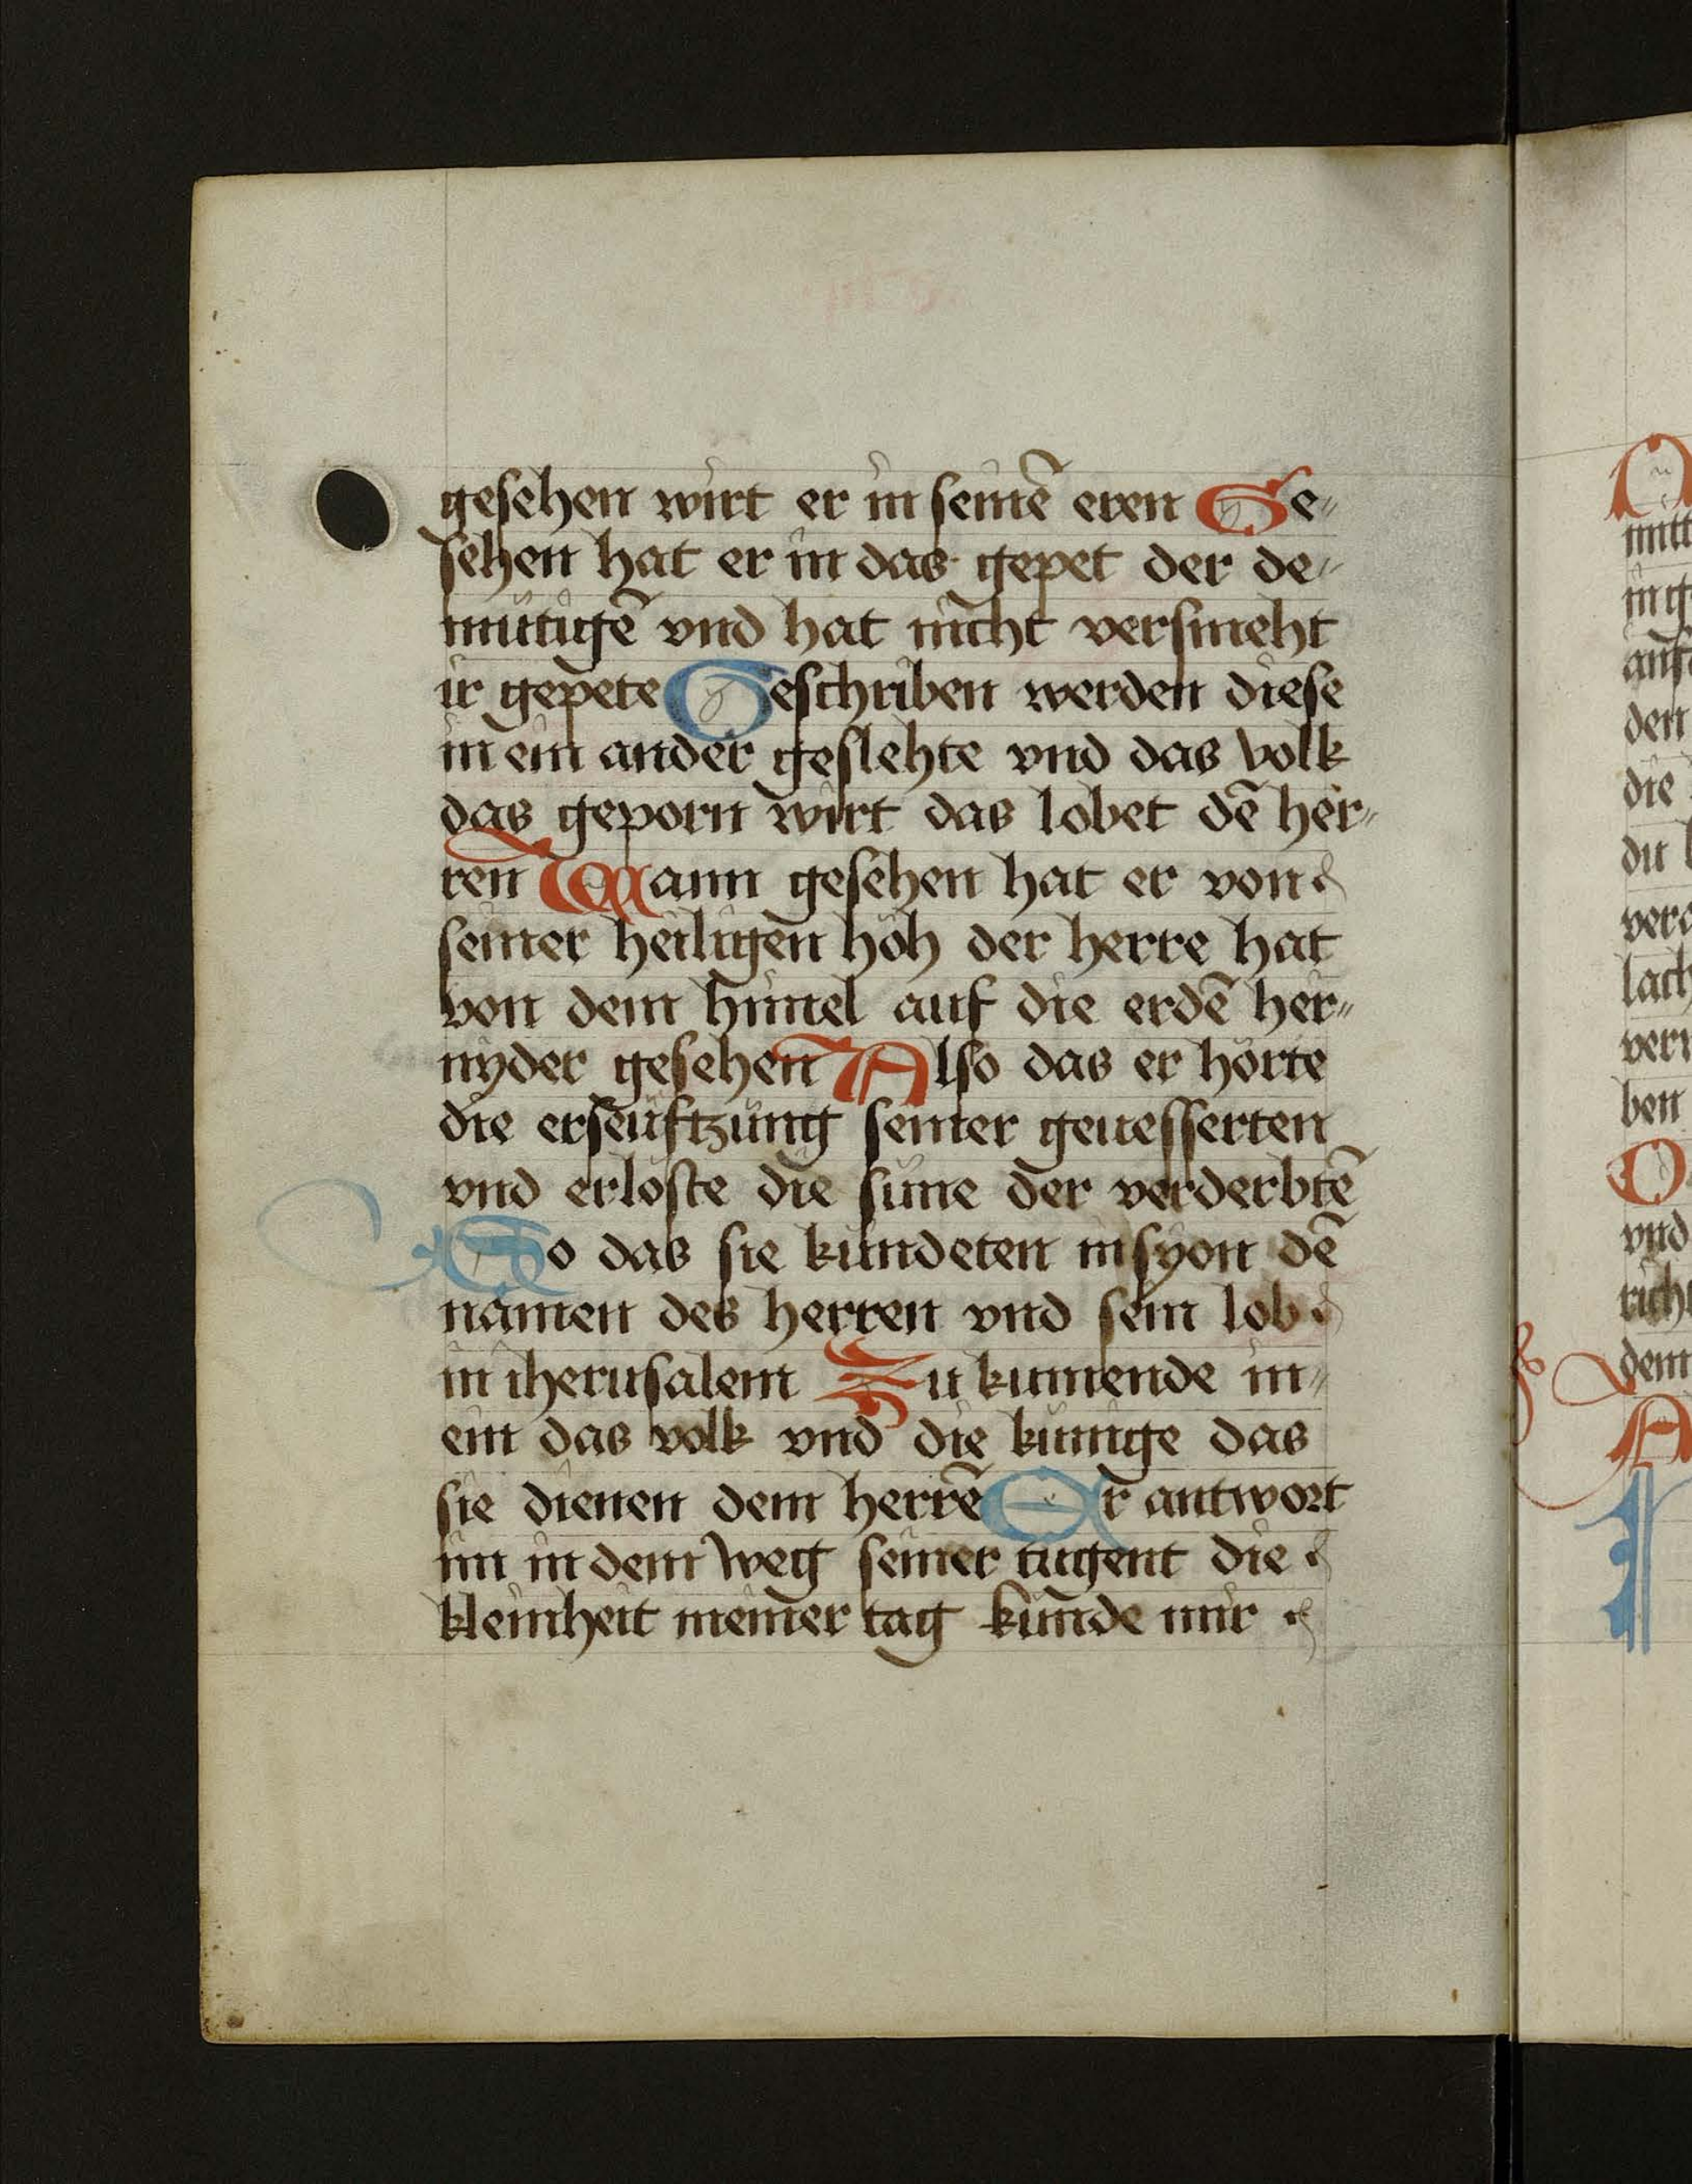 gesehen wirt er in seinē eren Ge-
sehen hat er in das gepet der de-
mütigē vnd hat nicht versmeht
ir gepete Geschriben werden diese
in ein ander geslehte vnd das volk
das geporn wirt das lobet dē her-
ren Wann gesehen hat er von
seiner heiligen höh der herre hat
von dem himel auf die erdē her-
nyder gesehen Also das er hörte
die erseüftzüng seiner geuesserten
vnd erlöste die süne der verderbtē
So das sie kündeten in syon dē
namen des herren vnd sein lob
in iherusalem Zu kumende in-
ein das volk vnd die künige das
sie dienen dem herrē Er antwort
im in dem weg seiner tugent die
kleinheit meiner tag künde mir
mitt
in g
auf
den
die
du
lach
ben
vnd
dem